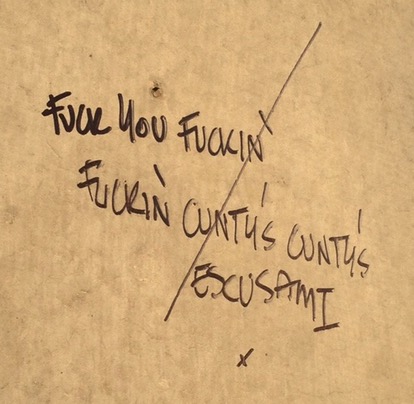 FUCK YOU FUCKIN'
FUCKIN' CUNTY'S CUNTY'S
ESCUSAMI
x